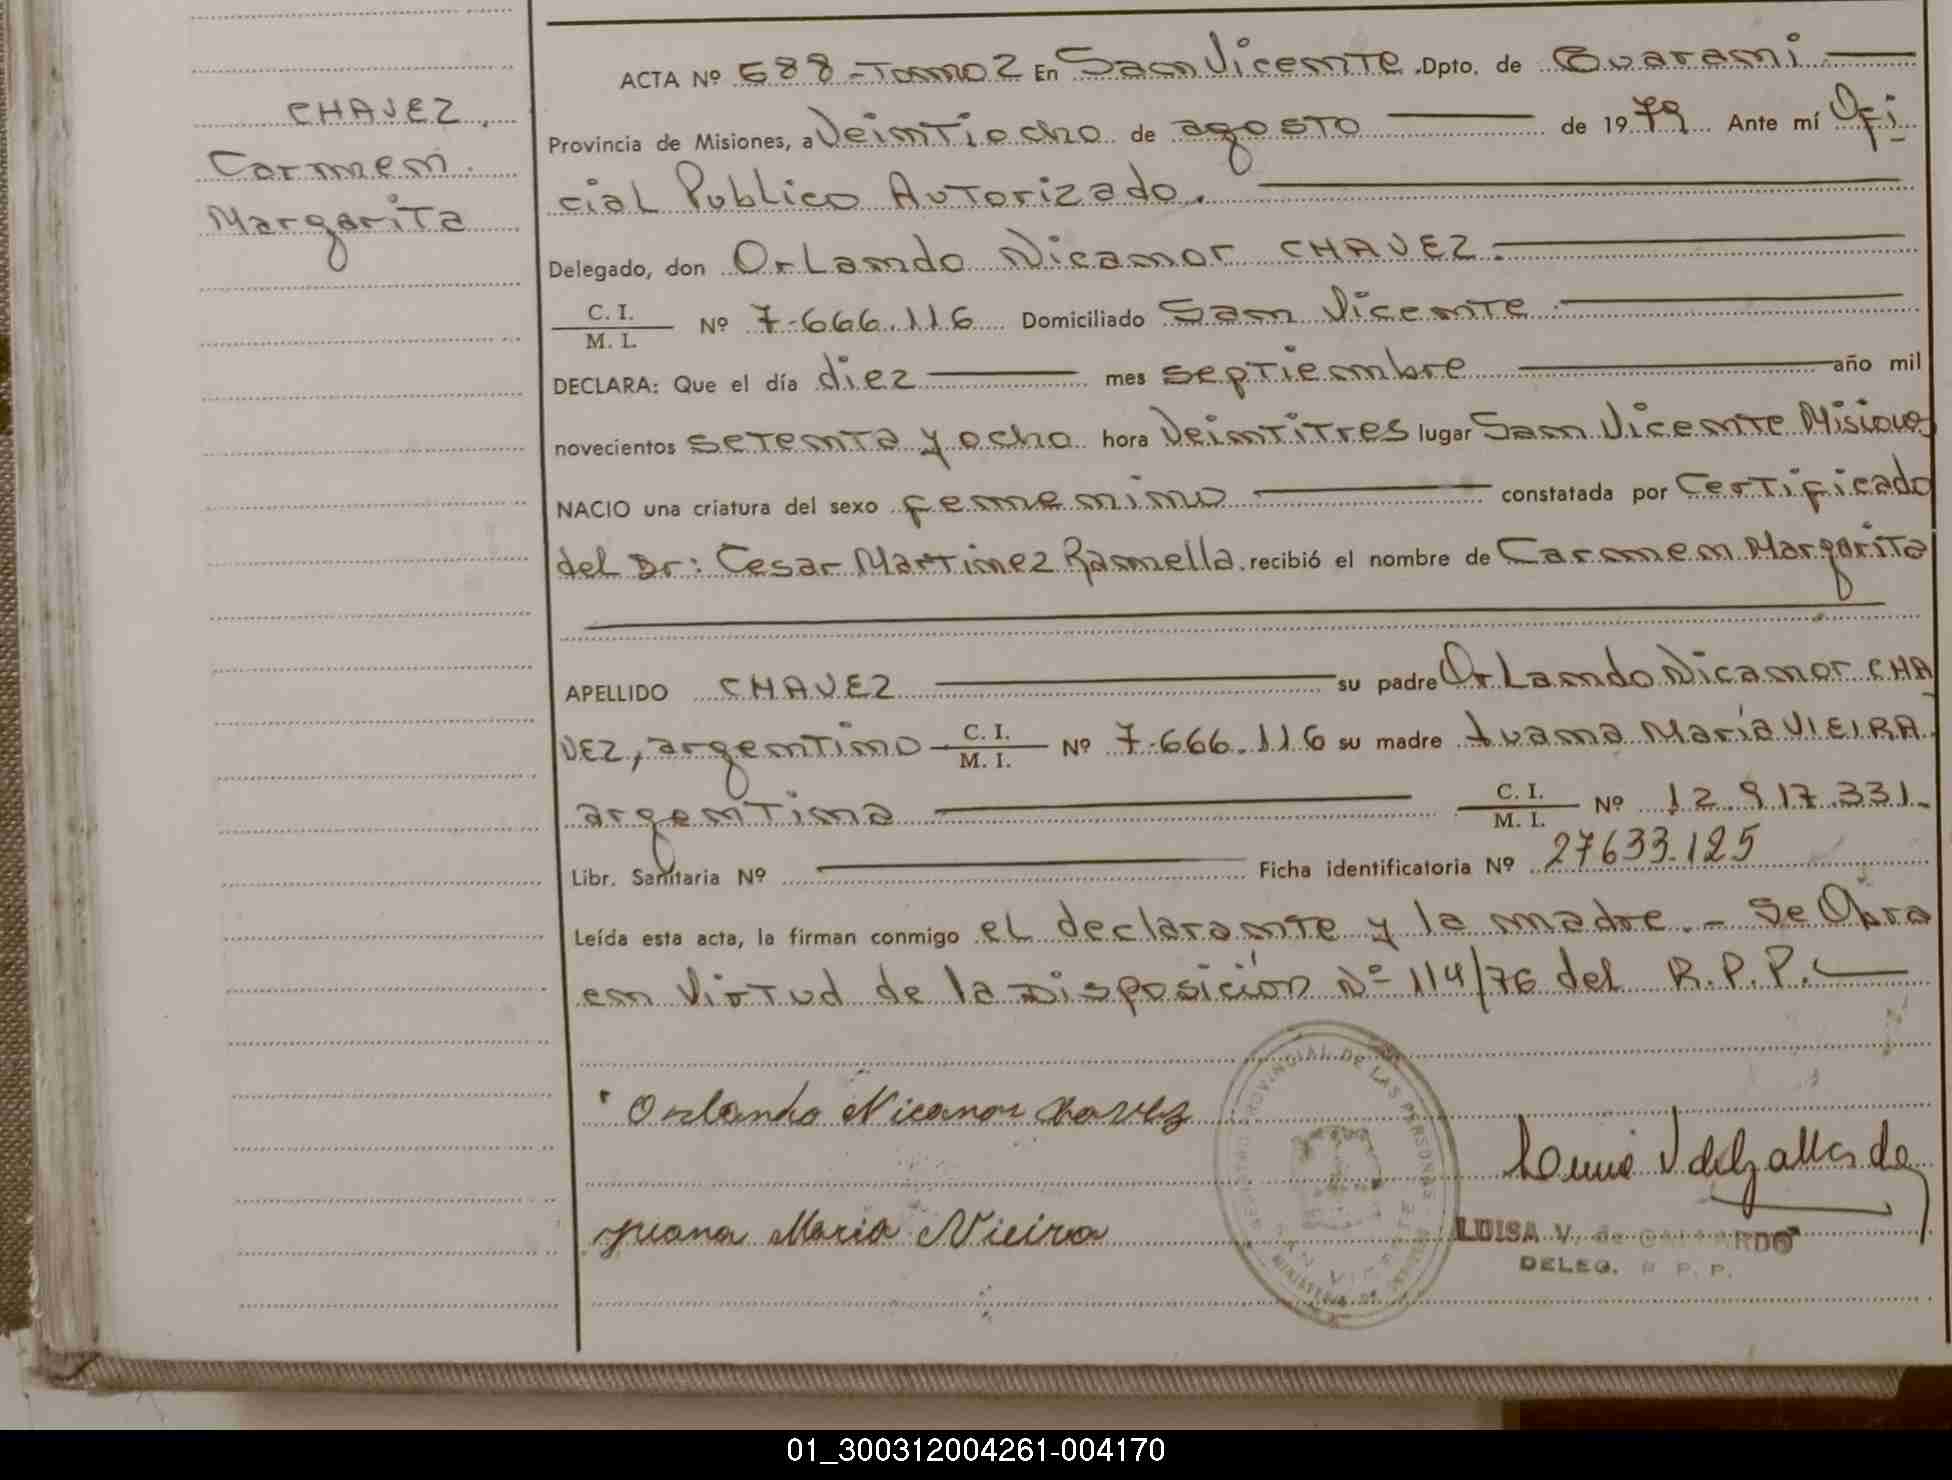 CHAVEZ,
Carmen
Margarita
ACTA Nº 688 - Tomo 2 En San Vicente Dpto. de Guarani
Provincia de Misiones, a Veintiocho de agosto de 1979 Ante mí Ofi
cial Publico Autorizado.
Delegado, don Orlando Nicanor CHAVEZ.
C. I.
M. I. Nº 7.666.116 Domiciliado San Vicente
DECLARA: Que el día diez mes septiembre año mil
novecientos setenta y ocho hora Veintitres lugar San Vicente Misiones
NACIO una criatura del sexo femenino constatada por Certificado
del Dr: Cesar Martinez Ramella recibió el nombre de Carmen Margarita
APELLIDO CHAVEZ su padre Orlando Nicanor CHA
VEZ, argentino C. I. M. I. Nº 7.666.116 su madre Juana María VIEIRA
argentina C. I. M. I. Nº 12.917.331.
Libr. Sanitaria Nº Ficha identificatoria Nº 27633.125
Leída esta acta, la firman conmigo el declarante y la madre. - Se Obra
en Virtud de la Disposición Nº 114/76 del R.P.P.
Orlando Nicanor Chavez
Juana Maria Vieira
REGISTRO PROVINCIAL DE LAS PERSONAS
SAN VICENTE
LUISA V. de GALLARDO
DELEG. R. P. P.
01_300312004261-004170